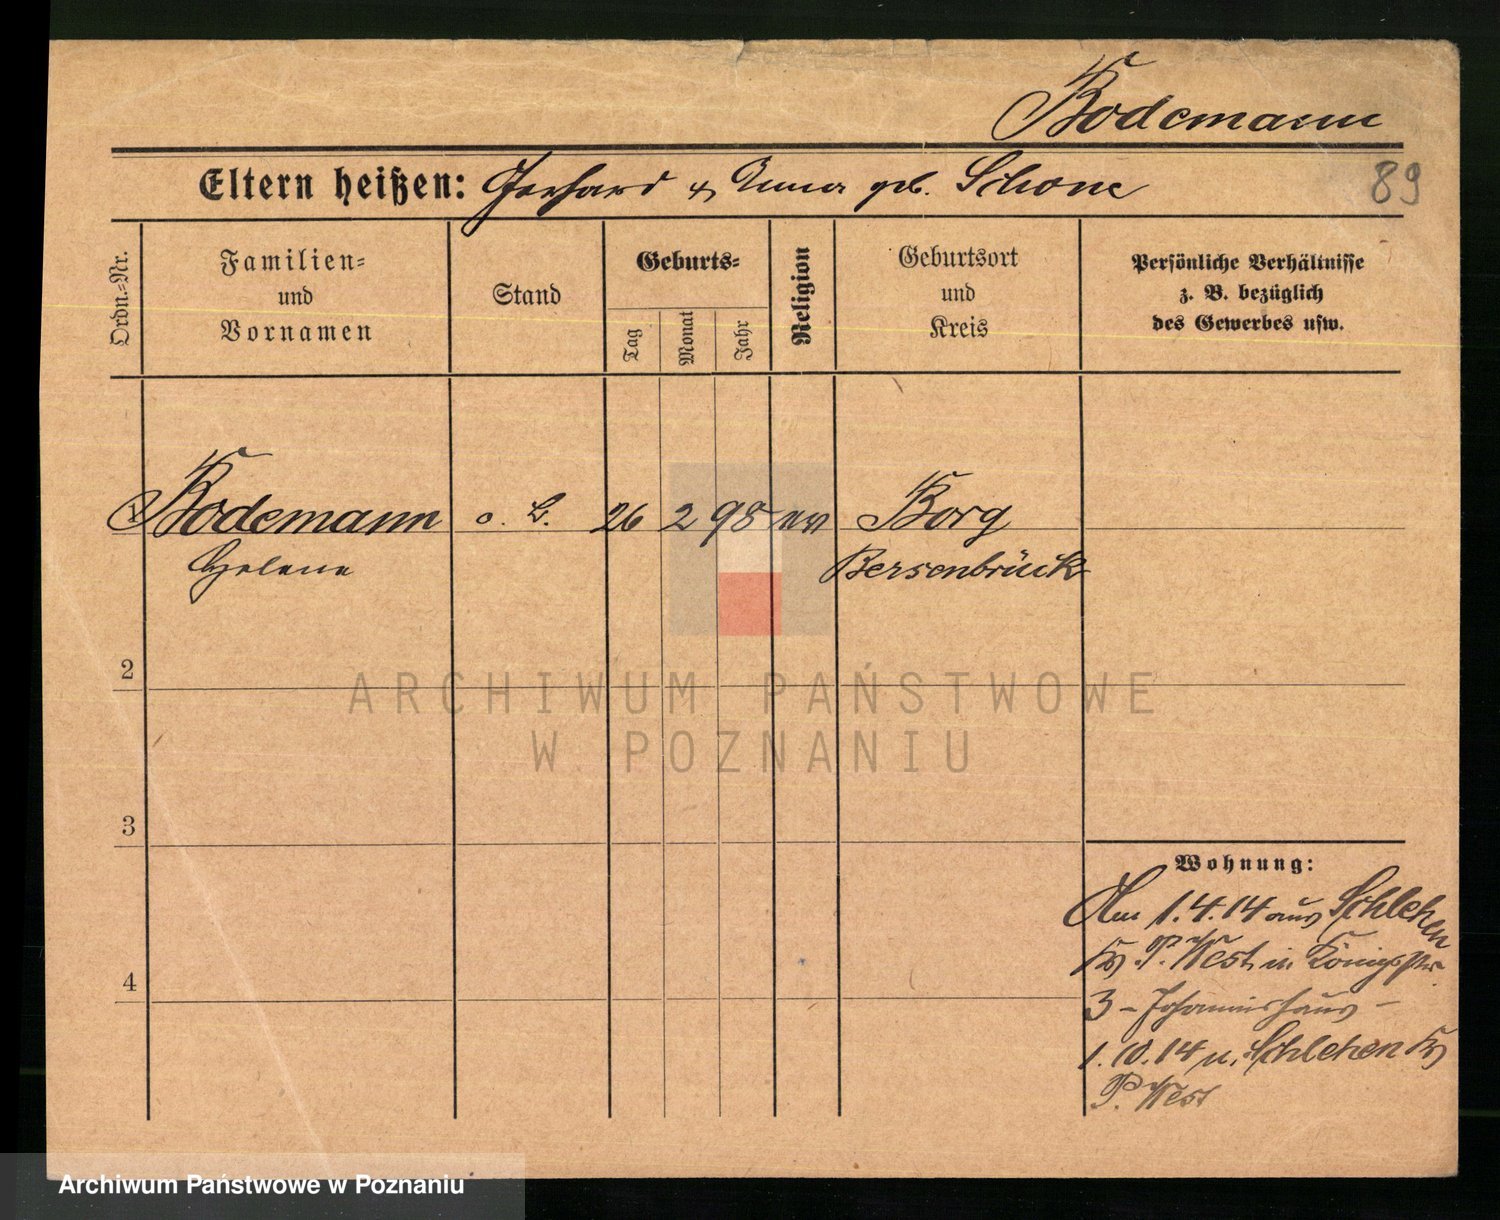 Bodemann
Eltern heißen: Gerhard & Anna geb. Schone
89
Ordn.-Nr.
Familien-
und
Vornamen
Stand
Geburts-
Tag
Monat
Jahr
Religion
Geburtsort
und
Kreis
Persönliche Verhältnisse
z. B. bezüglich
des Gewerbes usw.
1 Bodemann o. B. 26 2 98 ev Borg
Helene Bersenbrück
2
ARCHIWUM PAŃSTWOWE
W POZNANIU
3
Wohnung:
Am 1.4.14 aus Schlehen
Kr P. West in Königstr.
4
3 - Johannishaus -
1.10.14 n. Schlehen Kr
P. West
Archiwum Państwowe w Poznaniu